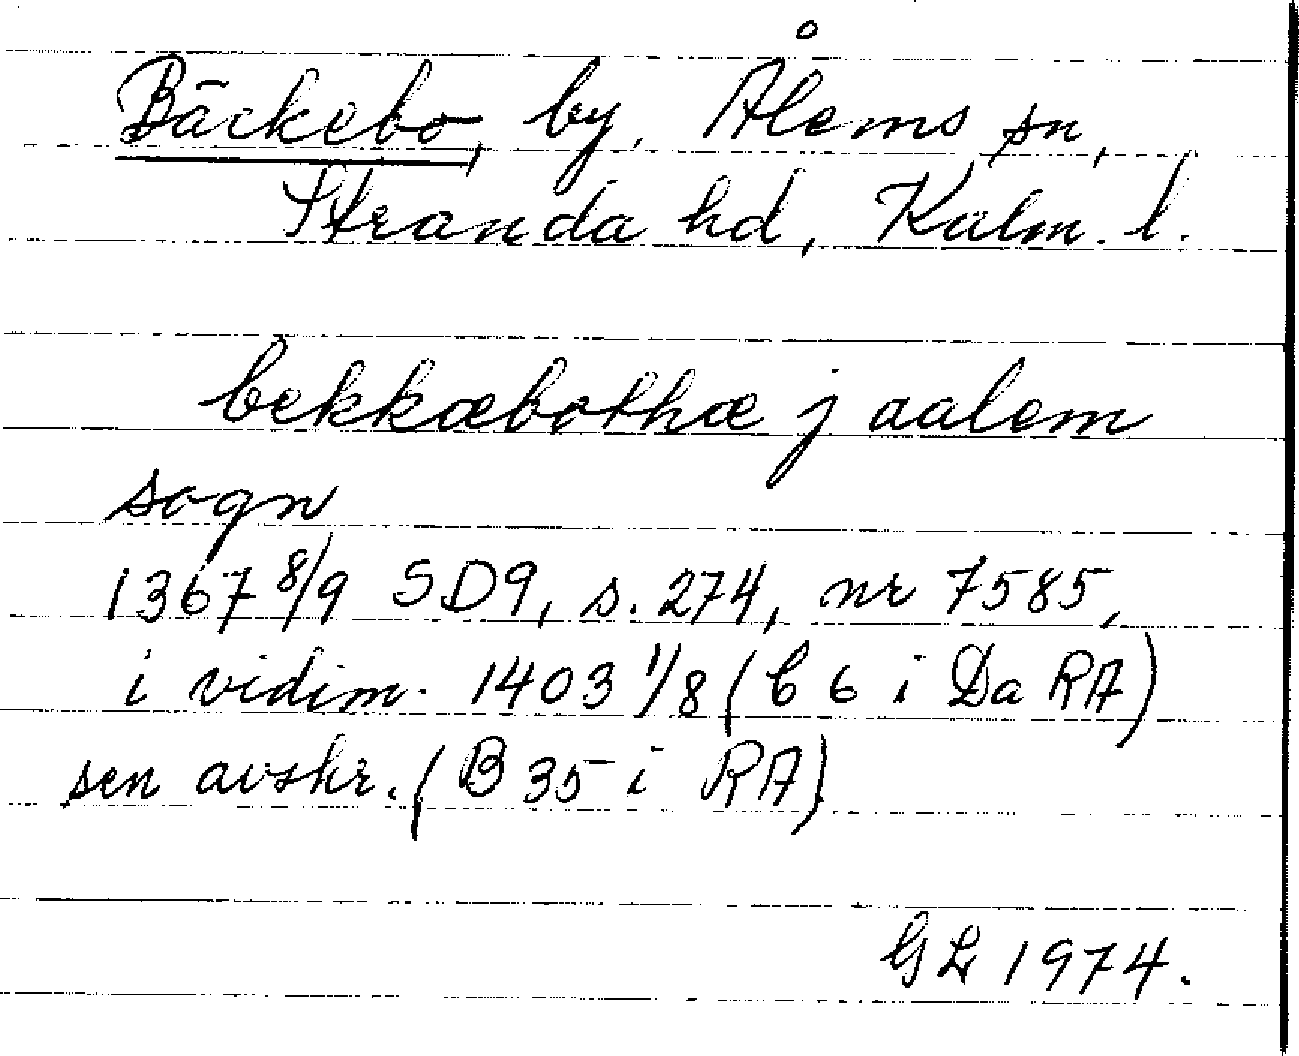 Bäckebo, by, Ålems sn,
Stranda hd, Kalm. l.
bekkæbothæ j aalem
sogn
1367 8/9 SD9, s. 274, nr 7585,
i vidim. 1403 1/8 (C 6 i Da RA)
sen avskr. (B 35 i RA)
GL 1974.